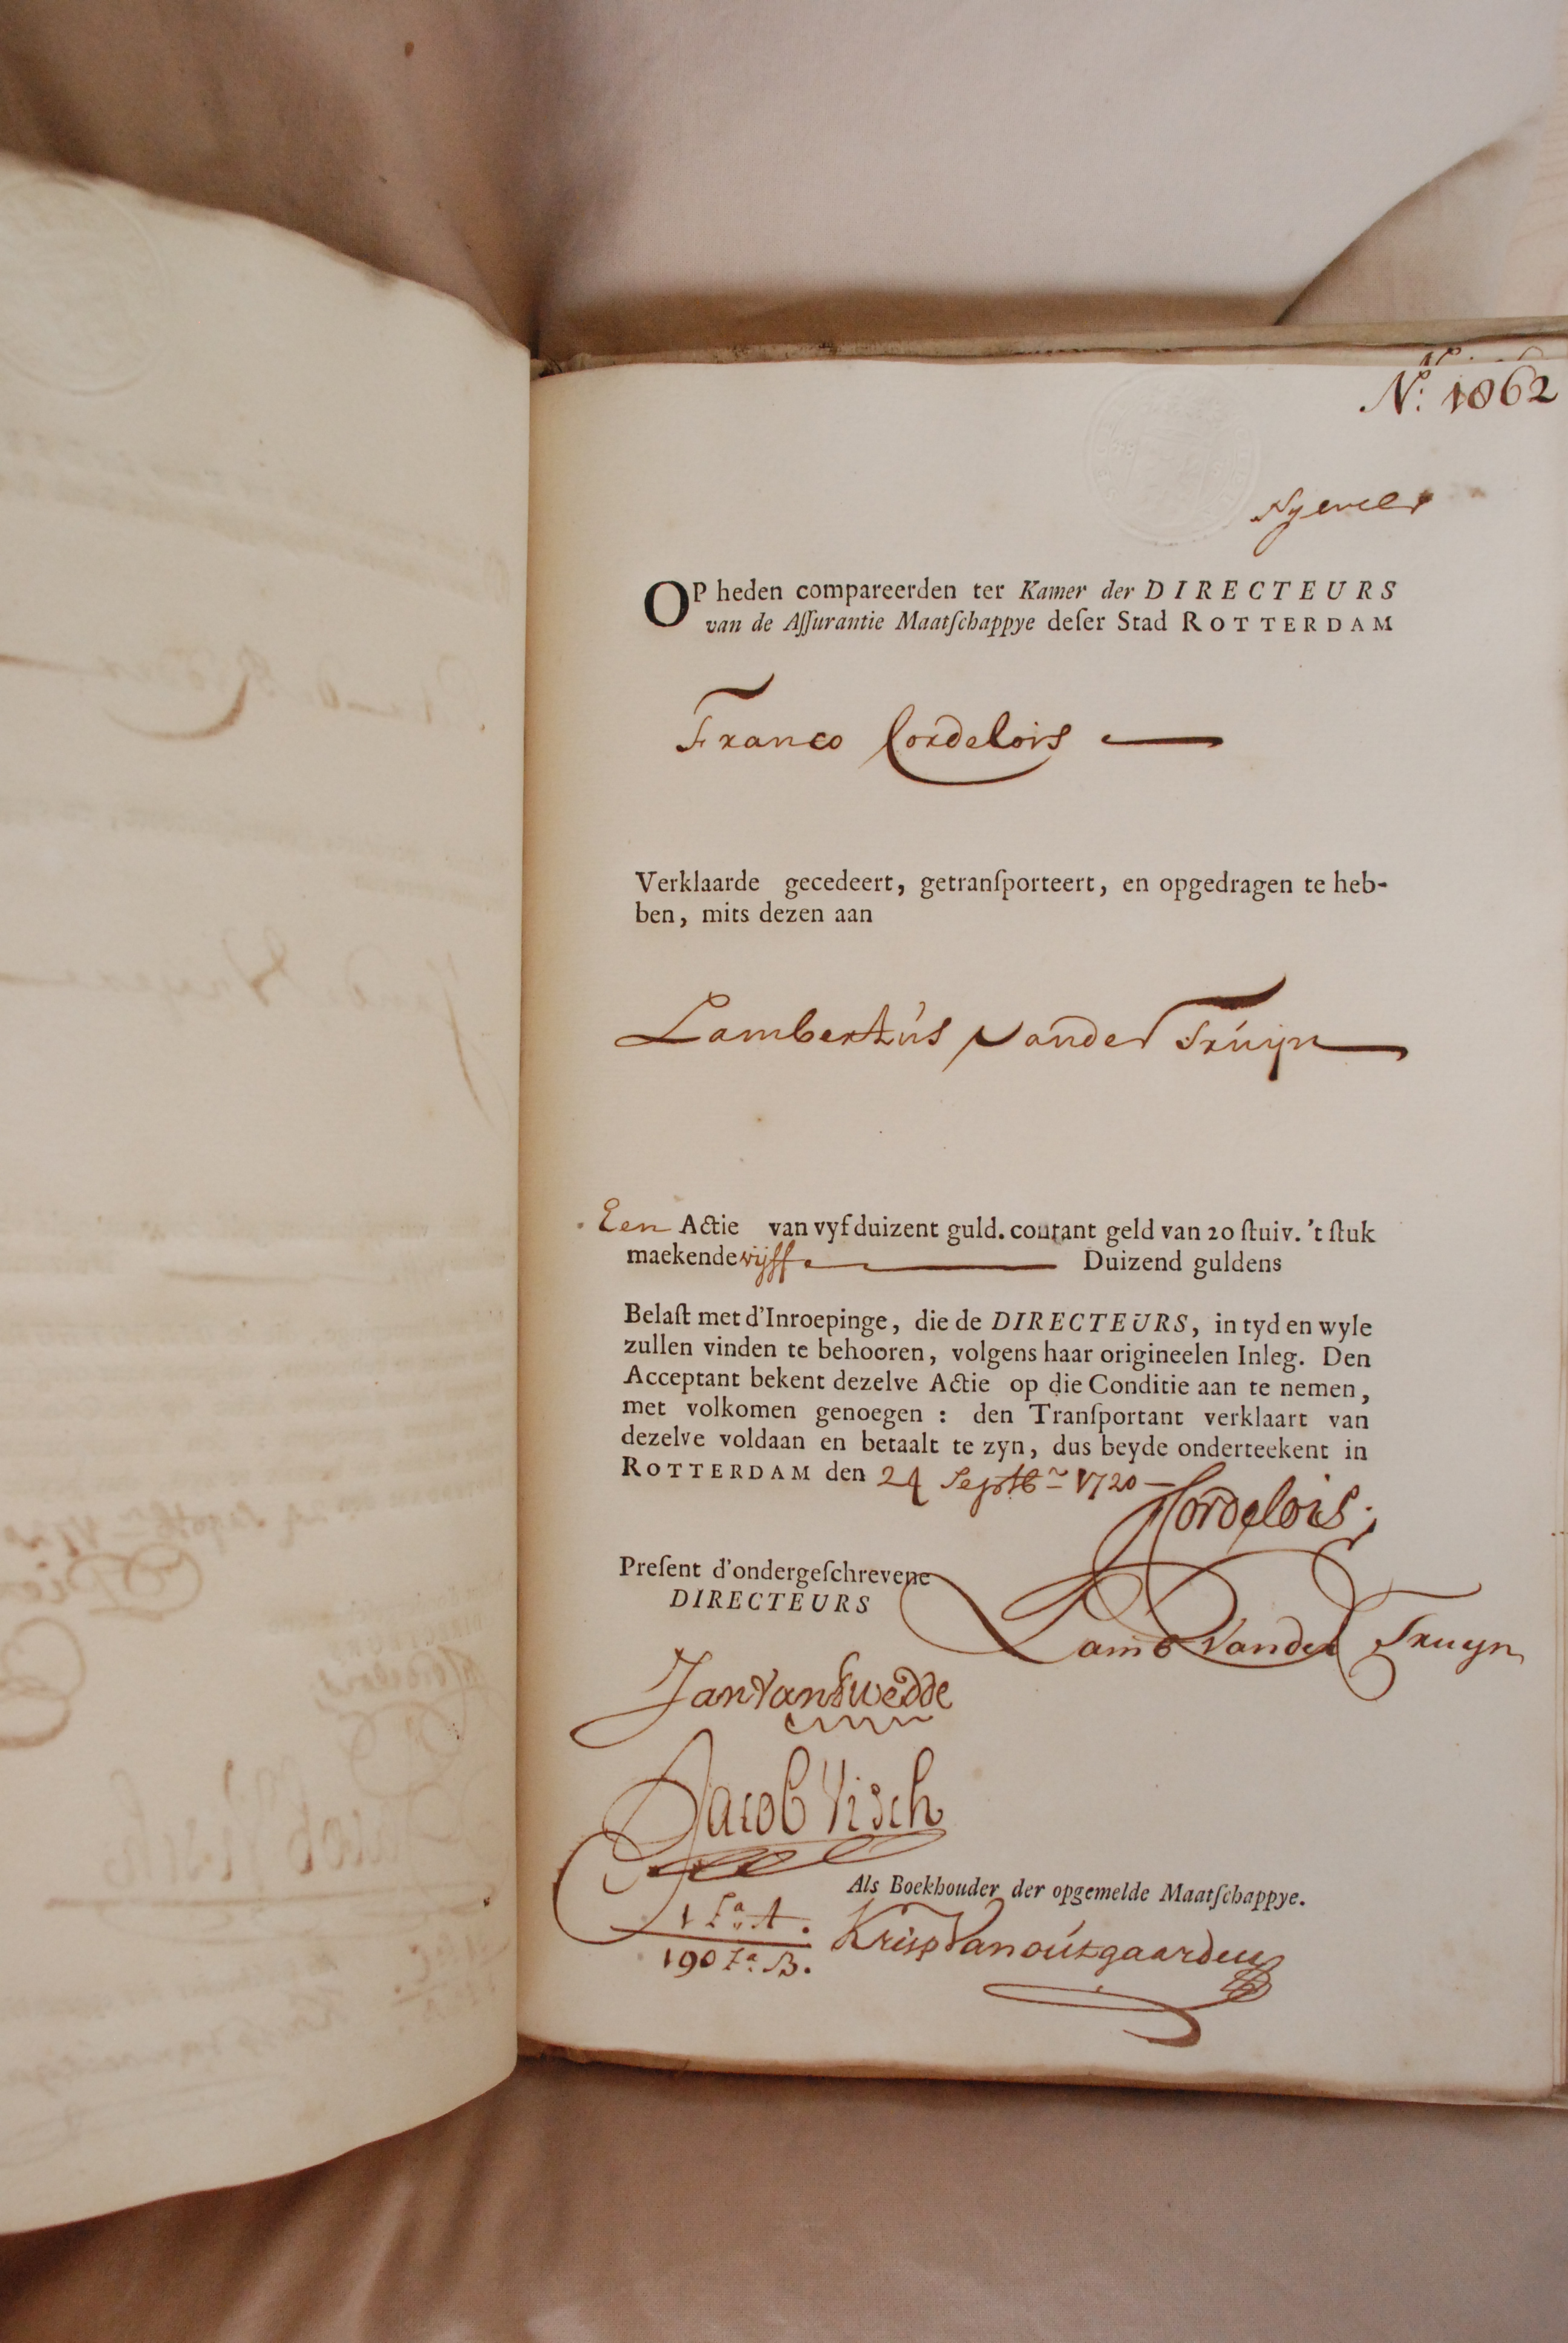 No: 1862
OP heden compareerden ter Kamer der DIRECTEURS
van de Aſſurantie Maatſchappye deſer Stad ROTTERDAM
Franco Cordelois
Verklaarde gecedeert, getranſporteert, en opgedragen te heb-
ben, mits dezen aan
Lambertús vander Trúijn
Een Actie van vyf duizent guld. courant geld van 20 ſtuiv. 't ſtuk
maekende vijff Duizend guldens
Belaſt met d'Inroepinge, die de DIRECTEURS, in tyd en wyle
zullen vinden te behooren, volgens haar origineelen Inleg. Den
Acceptant bekent dezelve Actie op die Conditie aan te nemen,
met volkomen genoegen : den Tranſportant verklaart van
dezelve voldaan en betaalt te zyn, dus beyde onderteekent in
ROTTERDAM den 24 Septbr 1720
Cordelois
Preſent d'ondergeſchrevene
DIRECTEURS
Lamb Vander Truyn
Jan Van Swedde
Jacob Visch
Als Boekhouder der opgemelde Maatſchappye.
1 La A.
Krisp Van oútgaarden
190 La B.